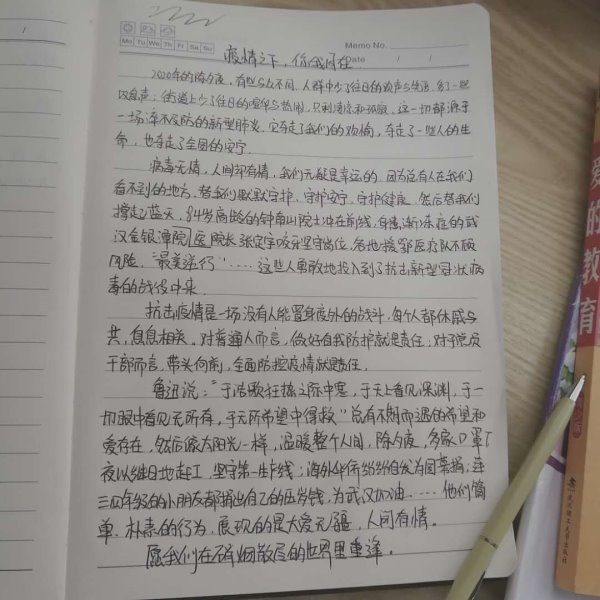 Memo No.
Mo Tu We Th Fr Sa Su
Date / /
疫情之下，你我同在
2020年的除夕夜，有些与众不同，人群中少了往日的欢声与笑语，多了一些
叹息声；街道上少了往日的喧闹与热闹，只剩凄凉和孤寂，这一切都源于
一场猝不及防的新型肺炎，它夺走了我们的欢愉，夺走了一些人的生
命，也夺走了全国的安宁。
病毒无情，人间却有情，我们无疑是幸运的，因为总有人在我们
看不到的地方，替我们默默守护，守护安宁，守护健康，然后替我们
撑起蓝天，84岁高龄的钟南山院士冲在前线，身患渐冻症的武
汉金银潭院医院长张定宇咬牙坚守岗位，各地援鄂医疗队不顾
风险，“最美逆行”……这些人勇敢地投入到了抗击新型冠状病
毒的战役中来
抗击疫情是一场没有人能置身度外的战斗，每个人都休戚与
共，息息相关。对普通人而言，做好自我防护就是责任；对于党员
干部而言，带头向前，全面防控疫情就是责任。
鲁迅说：“于浩歌狂热之际中寒，于天上看见深渊，于一
切眼中看见无所有，于无所希望中得救”总有不期而遇的希望和
爱存在，然后像太阳光一样，温暖整个人间，除夕夜，多家口罩厂
夜以继日地赶工，坚守第一生产线；海外华侨纷纷自发为国募捐；连
三四年级的小朋友都捐出自己的压岁钱，为武汉加油……他们简
单、朴素的行为，展现的是大爱无疆，人间有情。
愿我们在硝烟散尽的世界里重逢。
爱的教育
武汉理工大学出版社